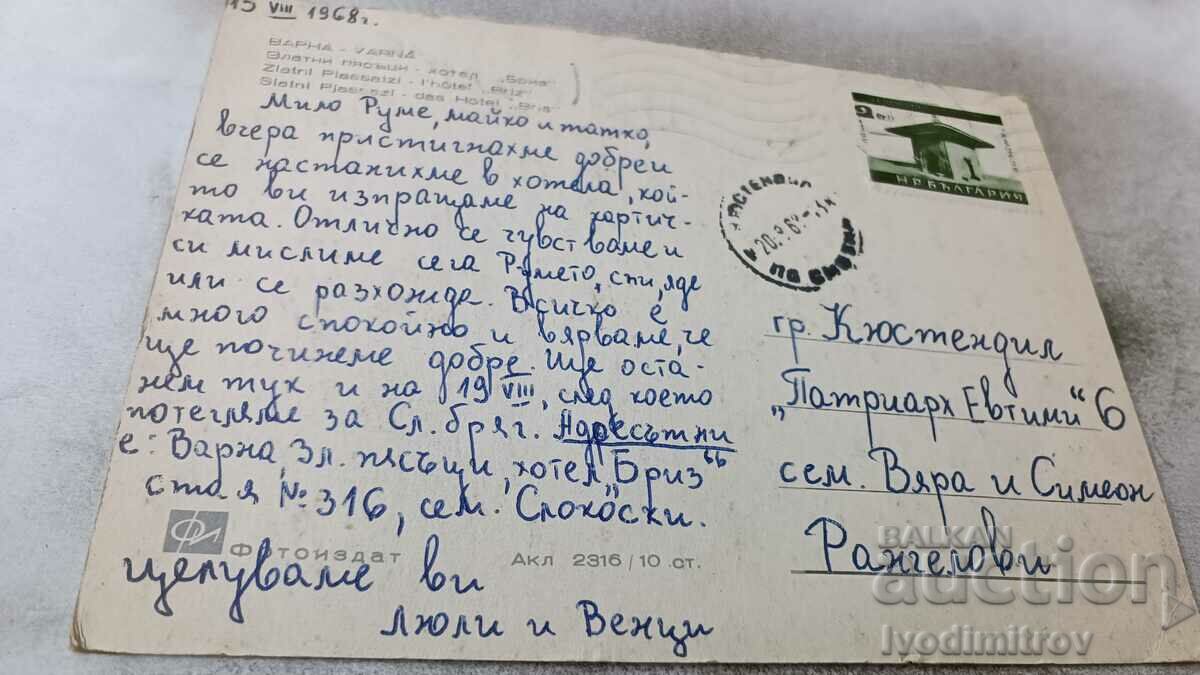 15 VIII 1968 г.
ВАРНА - VARNA
Златни пясъци - хотел „Бриз"
Zlatni Piassatzi - l'hôtel „Briz"
Slatni Pjassazi - das Hotel „Bris"
Мило Руме, майко и татко,
вчера пристигнахме добре и
се настанихме в хотела, кой-
то ви изпращаме на картич-
ката. Отлично се чувстваме и
си мислиме сега Румето, спи, яде
или се разхожда. Всичко е
много спокойно и вярваме, че
ще починеме добре. Ще оста-
нем тук и на 19 VIII, след което
потегляме за Сл. бряг. Адресът ни
е: Варна, Зл. пясъци, хотел „Бриз"
стая № 316, сем. Спокоски.
целуваме ви
Люли и Венци
ФИ
Фотоиздат
Акл 2316/10 ст.
2 ст
НР БЪЛГАРИЯ
КЮСТЕНДИЛ
гр. Кюстендил
„Патриарх Евтими" 6
сем. Вяра и Симеон
Рангелови
BALKAN
auction
Ivodimitrov